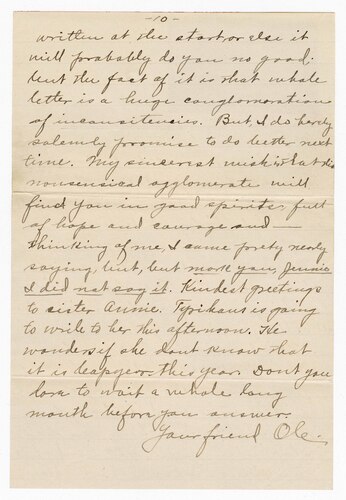 -10-
written at the start, or else it
will probably do you no good.
But the fact of it is that whole
letter is a huge conglomoration
of inconsitencies. But I do hereby
solemly promise to do better next
time. My sincerest wish is that this
nonsensical agglomerate will
find you in good spirits, full
of hope and courage and —
thinking of me, I came prety nearly
saying, but, but mark you, Jennie
I did not say it. Kindest greetings
to sister Annie. Typihans is going
to write to her this afternoon. He
wonders if she dont know that
it is leapyear this year. Dont you
dare to wait a whole long
month before you answer.
Your friend Ole.